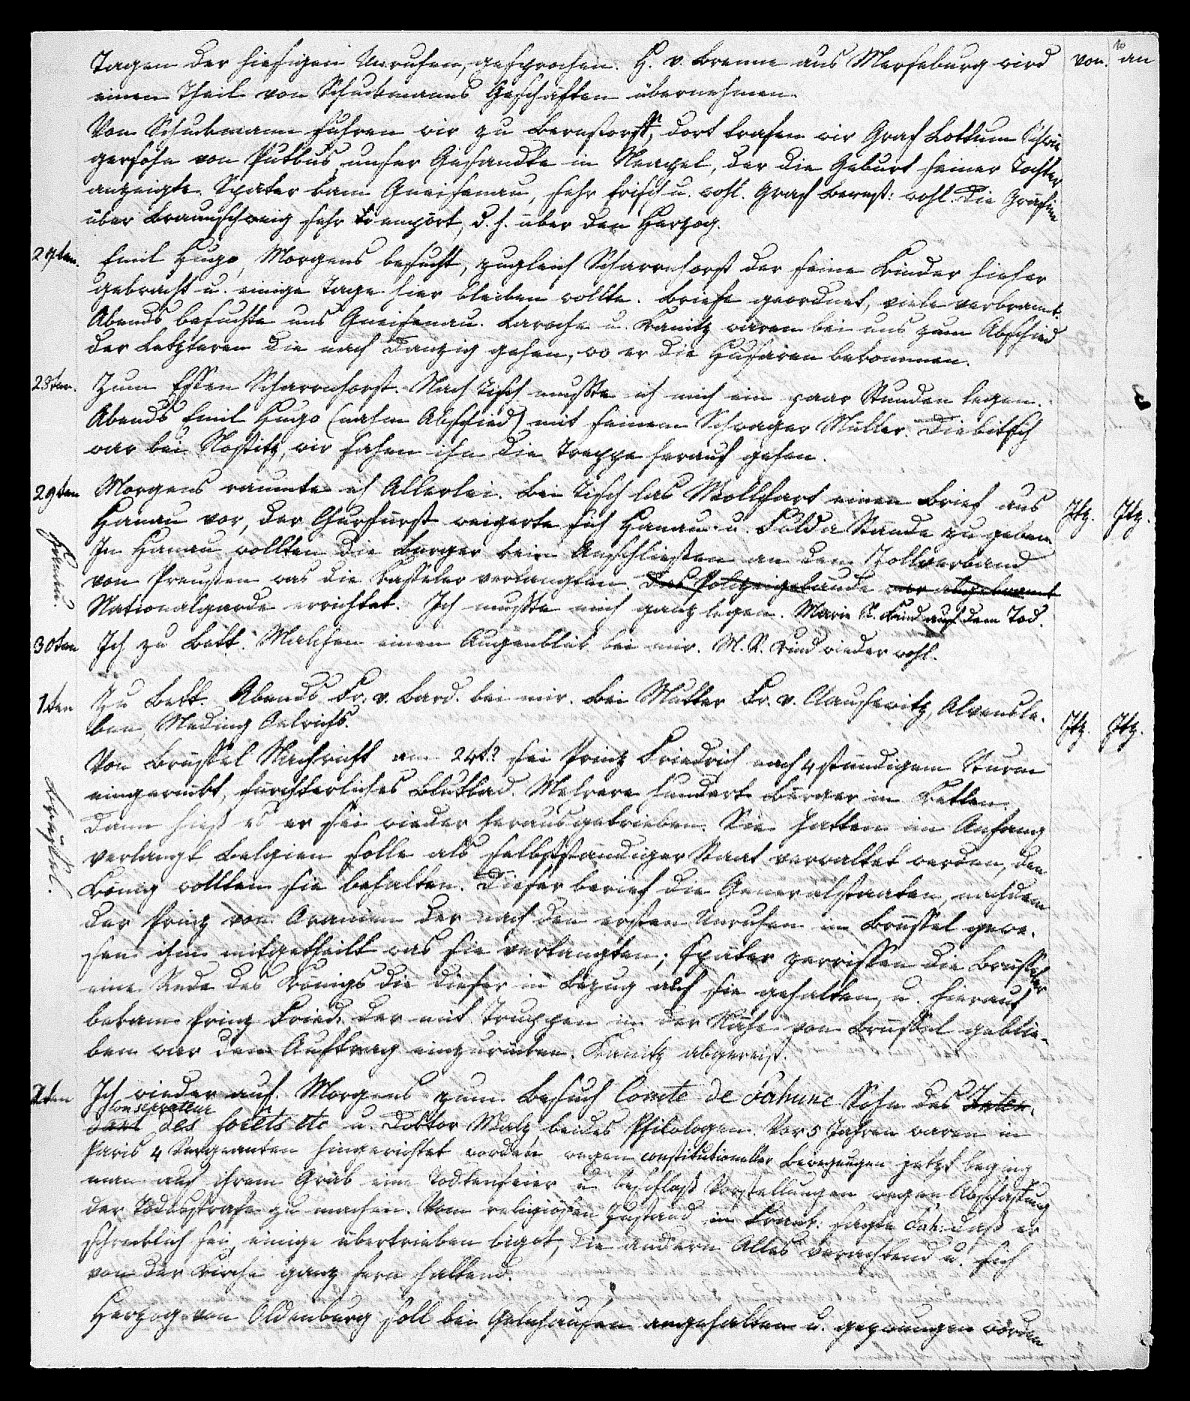 Tagen der hiesigen Unruhen, gesprochen. H. v. Brenn aus Merseburg wird
einen Theil von Schuckmanns Geschäften übernehmen.
Von Schuckmann fuhren wir zu Bernstorff, dort trafen wir Graf Lottum Schwie
gersohn von Putbus, unser Gesandte in Neapel, der die Geburt seiner Tochter
anzeigte. Später kam Gneisenau, sehr frisch u. wohl. Graf Bernst: wohl. Die Gräfinn
über Braunschweig sehr empört, d. h. über den Herzog.
27ten. Emil Hugo Morgens besucht, zugleich Scharnhorst der seine Kinder hieher
gebracht u. einige Tage hier bleiben wollte. Briefe geordnet, viele verbrannt.
Abends besuchte uns Gneisenau. Laroche u. Kanitz waren bei uns zum Abschied
der Letzteren die nach Danzig gehen, wo er die Husaren bekommen.
28ten. Zum Essen Scharnhorst. Nach Tisch mußte ich mich ein paar Stunden legen.
Abends Emil Hugo (nahm Abschied) mit seinem Schwager Müller. Diebitsch
war bei Nostitz, wir sahen ihn die Treppe herauf gehen.
29ten Morgens räumte ich Allerlei. Bei Tisch las Wollfart einen Brief aus
Hanau vor, der Churfürst weigerte sich Hanau u. Fulda Stände zu geben
In Hanau wollten die Bürger kein Anschließen an den Zollverband
von Preußen was die Casseler verlangten, das Polizeigebäude war abgebrannt
Nationalgarde errichtet. Ich mußte mich ganz legen. Marie Kind auf dem Tod.
Hanau.
30ten Ich zu Bett. Malchen einen Augenblick bei mir. M. Kind wieder wohl.
1ten Zu Bett. Abends Fr. v. Bard. bei mir. Bei Mutter Fr. v. Clausewitz, Alvensle-
ben, Meding Oelrichs.
Von Brüssel Nachricht am 24t. sei Prinz Friedrich nach 4stündigem Sturm
eingerückt, fürchterliches Blutbad. Mehrere hundert Bürger in Ketten.
Dann hieß es er sei wieder herausgetrieben. Sie hatten im Anfang
verlangt Belgien solle als selbstständiger Staat verwaltet werden, den
König wollten sie behalten. Dieser berief die Generalstaaten, nachdem
der Prinz von Oranien der nach den ersten Unruhen in Brüssel gewe-
sen ihm mitgetheilt was sie verlangten; später zerrissen die Brüsseler
eine Rede des Königs die dieser in Bezug auf sie gehalten, u. hierauf
bekam Prinz Fried. der mit Truppen in der Nähe von Brüssel geblie-
ben war den Auftrag einzurücken. Kanitz abgereist.
Brüssel.
2ten Ich wieder auf. Morgens zum Besuch Comte de Sahune Sohn des Inten-
dant Conservateur des forêts etc u. Doktor Walz beides Philologen. Vor 5 Jahren waren in
Paris 4 Sergeanten hingerichtet worden wegen constitutioneller Bewegungen jetzt beging
man auf ihrem Grab eine Todtenfeier u. beschloß Vorstellungen wegen Abschaffung
der Todesstrafe zu machen. Vom religiösen Zustand in Frank: sagte Sah: daß er
schrecklich sei, einige übertrieben bigot, die andern Alles verachtend u. sich
von der Kirche ganz fern haltend.
Herzog von Oldenburg soll bei Gelnhausen angehalten u. gezwungen worden
von. an